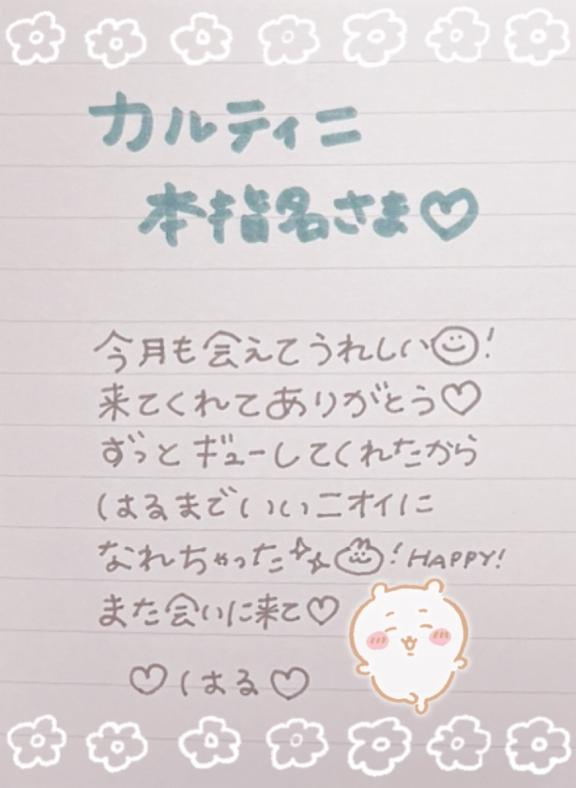 カルティニ
本指名さま♡
今月も会えてうれしい☺!
来てくれてありがとう♡
ずっとギューしてくれたから
はるまでいいニオイに
なれちゃった!HAPPY!
また会いに来て♡
♡はる♡